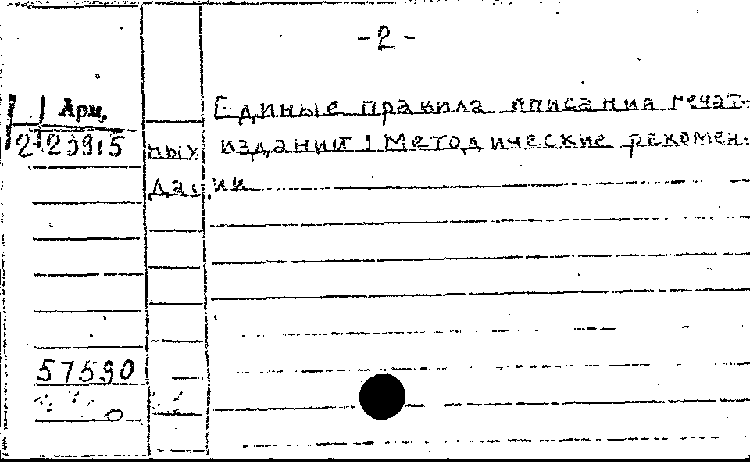 -2-
Арм.
Единые правила описания печат-
2 23915
ных изданий : Методические рекомен-
дации
57590